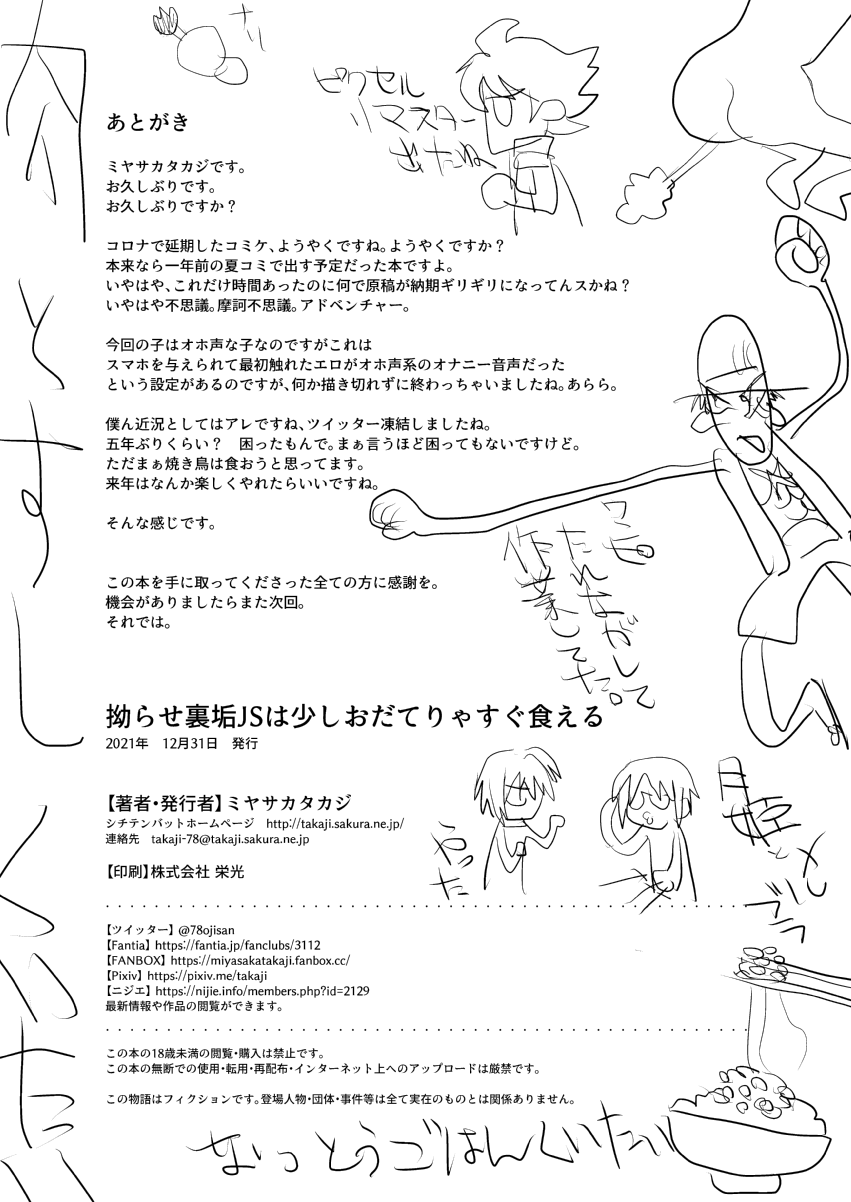 あとがき
ミヤサカタカジです。
お久しぶりです。
お久しぶりですか？
コロナで延期したコミケ、ようやくですね。ようやくですか？
本来なら一年前の夏コミで出す予定だった本ですよ。
いやはや、これだけ時間あったのに何で原稿が納期ギリギリになってんスかね？
いやはや不思議。摩訶不思議。アドベンチャー。
今回の子はオホ声な子なのですがこれは
スマホを与えられて最初触れたエロがオホ声系のオナニー音声だった
という設定があるのですが、何か描き切れずに終わっちゃいましたね。あらら。
僕ん近況としてはアレですね、ツイッター凍結しましたね。
五年ぶりくらい？　困ったもんで。まぁ言うほど困ってもないですけど。
ただまぁ焼き鳥は食おうと思ってます。
来年はなんか楽しくやれたらいいですね。
そんな感じです。
この本を手に取ってくださった全ての方に感謝を。
機会がありましたらまた次回。
それでは。
ピクセル
リマスター
出たね
拗らせ裏垢JSは少しおだてりゃすぐ食える
2021年　12月31日　発行
【著者・発行者】ミヤサカタカジ
シチテンバットホームページ　http://takaji.sakura.ne.jp/
連絡先　takaji-78@takaji.sakura.ne.jp
【印刷】株式会社 栄光
やった
【ツイッター】@78ojisan
【Fantia】https://fantia.jp/fanclubs/3112
【FANBOX】https://miyasakatakaji.fanbox.cc/
【Pixiv】https://pixiv.me/takaji
【ニジエ】https://nijie.info/members.php?id=2129
最新情報や作品の閲覧ができます。
この本の18歳未満の閲覧・購入は禁止です。
この本の無断での使用・転用・再配布・インターネット上へのアップロードは厳禁です。
この物語はフィクションです。登場人物・団体・事件等は全て実在のものとは関係ありません。
なっとうごはんくいたい